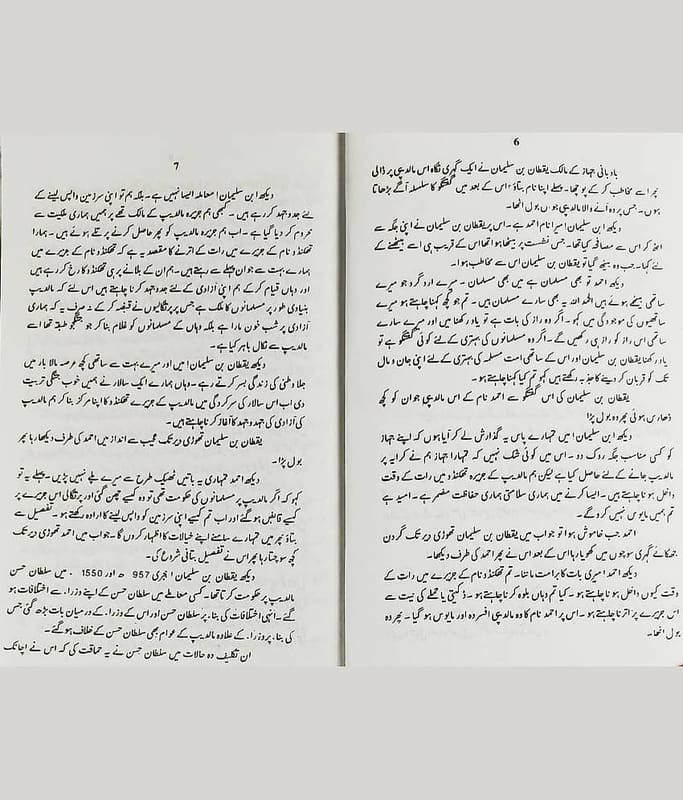 6
بادبانی جہاز کے مالک یقطان بن سلیمان نے ایک گہری نگاہ اس مالدیپی پر ڈالی
پھر اسے مخاطب کر کے پوچھا۔ پہلے اپنا نام بتاؤ اس کے بعد میں گفتگو کا سلسلہ آگے بڑھاتا
ہوں۔ جس پر وہ آنے والا مالدیپی جواں بول اٹھا۔
دیکھ ابن سلیمان میرا نام احمد ہے۔ اس پر یقطان بن سلیمان نے اپنی جگہ سے
اٹھ کر اس سے مصافحہ کیا تھا۔ جس نشست پر بیٹھا ہوا تھا اس کے قریب ہی اسے بیٹھنے کے
لئے کہا۔ جب وہ بیٹھ گیا تو یقطان بن سلیمان اس سے مخاطب ہوا۔
دیکھ احمد تو بھی مسلمان ہے میں بھی مسلمان۔ میرے ارد گرد جو میرے
ساتھی بیٹھے ہوئے ہیں الحمد اللہ یہ بھی سارے مسلمان ہیں۔ تم جو کچھ کہنا چاہتے ہو میرے
ساتھیوں کی موجودگی میں کہو۔ اگر وہ راز کی بات ہے تو یاد رکھنا میں اور میرے سارے
ساتھی اس راز کو راز ہی رکھیں گے۔ اگر وہ مسلمانوں کی بہتری کے لئے کوئی گفتگو ہے تو
یاد رکھنا یقطان بن سلیمان اور اس کے ساتھی امت مسلمہ کی بہتری کے لئے اپنی جان و مال
تک کو قربان کر دینے کا جذبہ رکھتے ہیں کہو تم کیا کہنا چاہتے ہو۔
یقطان بن سلیمان کی اس گفتگو سے احمد نام کے اس مالدیپی جوان کو کچھ
ڈھارس ہوئی پھر وہ بول پڑا
دیکھ ابن سلیمان میں تمہارے پاس یہ گذارش لے کر آیا ہوں کہ اپنے جہاز
کو کسی مناسب جگہ روک دو۔ اس میں کوئی شک نہیں کہ تمہارا جہاز ہم نے کرایہ پر
مالدیپ جانے کے لئے حاصل کیا ہے لیکن ہم مالدیپ کے جزیرہ تھکنڈو میں رات کے وقت
داخل ہونا چاہتے ہیں۔ ایسا کرنے میں ہماری سلامتی ہماری حفاظت مضمر ہے۔ امید ہے
تم ہمیں مایوس نہیں کرو گے۔
احمد جب خاموش ہوا تو جواب میں یقطان بن سلیمان تھوڑی دیر تک گردن
جھکائے گہری سوچوں میں کھویا رہا اس کے بعد اس نے پھر احمد کی طرف دیکھا۔
دیکھ احمد! میری بات کا برا مت ماننا۔ تم تھکنڈو نام کے جزیرے میں رات کے
وقت کیوں داخل ہونا چاہتے ہو۔ کیا تم وہاں بلوہ کرنا چاہتے ہو۔ ڈکیتی یا حملے کی نیت سے
اس جزیرے پر اترنا چاہتے ہو۔ اس پر احمد نام کا وہ مالدیپی افسردہ اور مایوس ہو گیا۔ پھر وہ
بول اٹھا۔
7
دیکھ ابن سلیمان! معاملہ ایسا نہیں ہے۔ بلکہ ہم تو اپنی سرزمین واپس لینے کے
لئے جدوجہد کر رہے ہیں۔ کبھی ہم جزیرہ مالدیپ کے مالک تھے پر ہمیں ہماری ملکیت سے
محروم کر دیا گیا ہے۔ اب ہم جزیرہ مالدیپ کو پھر حاصل کرنے پر تلے ہوئے ہیں۔ ہمارا
تھکنڈو نام کے جزیرے میں رات کے اترنے کا مقصد یہ ہے کہ تھکنڈو نام کے جزیرے میں
ہمارے بہت سے جوان پہلے سے رہتے ہیں۔ ہم ان کے بلانے پر ہی تھکنڈو کا رخ کر رہے ہیں
اور وہاں قیام کر کے ہم اپنی آزادی کے لئے جدوجہد کرنا چاہتے ہیں اس لئے کہ مالدیپ
بنیادی طور پر مسلمانوں کا ملک ہے جس پر پرتگالیوں نے قبضہ کر کے نہ صرف یہ کہ ہماری
آزادی پر شب خون مارا ہے بلکہ وہاں کے مسلمانوں کو غلام بنا کر جو جنگجو طبقہ تھا اسے
مالدیپ سے نکال باہر کیا ہے۔
دیکھ یقطان بن سلیمان! میں اور میرے بہت سے ساتھی کچھ عرصہ مالا بار میں
جلا وطنی کی زندگی بسر کرتے رہے۔ وہاں ہمارے ایک سالار نے ہمیں خوب جنگی تربیت
دی اب اس سالار کی سرکردگی میں مالدیپ کے جزیرے تھکنڈو کو اپنا مرکز بنا کر ہم مالدیپ
کی آزادی کی جدوجہد کا آغاز کرنا چاہتے ہیں۔
یقطان بن سلیمان تھوڑی دیر تک عجیب سے انداز میں احمد کی طرف دیکھتا رہا پھر
بول پڑا۔
دیکھ احمد تمہاری یہ باتیں ٹھیک طرح سے میرے پلے نہیں پڑیں۔ پہلے یہ تو
کہو کہ اگر مالدیپ پر مسلمانوں کی حکومت تھی تو وہ کیسے چھن گئی اور پرتگالی اس جزیرے پر
کیسے قابض ہو گئے اور اب تم کیسے اپنی سرزمین کو واپس لینے کا ارادہ رکھتے ہو۔ تفصیل سے
بتاؤ پھر میں تمہارے سامنے اپنے خیالات کا اظہار کروں گا۔ جواب میں احمد تھوڑی دیر تک
کچھ سوچتا رہا پھر اس نے تفصیل بتانی شروع کی۔
دیکھ یقطان بن سلیمان! ہجری 957 ھ اور 1550 ء میں سلطان حسن
مالدیپ پر حکومت کرتا تھا۔ کسی معاملے میں سلطان حسن کے اپنے وزراء سے اختلافات ہو
گئے۔ انہی اختلافات کی بناء پر سلطان حسن اور اس کے وزراء کے درمیان بات بڑھ گئی جس
کی بناء پر وزراء کے علاوہ مالدیپ کے عوام بھی سلطان حسن کے خلاف ہو گئے۔
ان تکلیف دہ حالات میں سلطان حسن نے یہ حماقت کی کہ اس نے اچانک